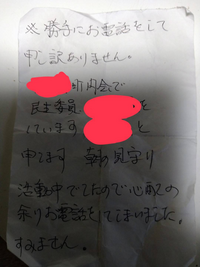 ※勝手にお電話をして
申し訳ありません。
町内会で
民生委員 を
しています と
申てます 朝の見守り
活動中でしたので心配の
余りお電話をしてしまいました。
すみません。